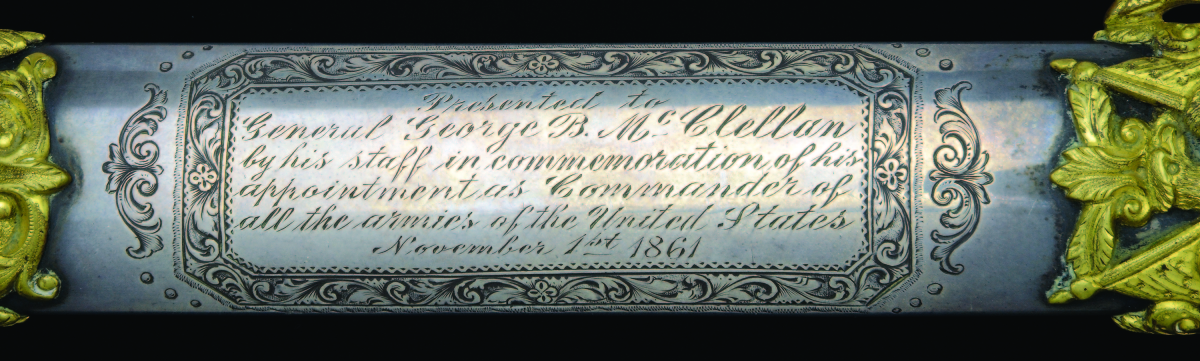 Presented to
General George B. Mc Clellan
by his staff in commemoration, of his
appointment as Commander of
all the armies of the United States
November 1st 1861